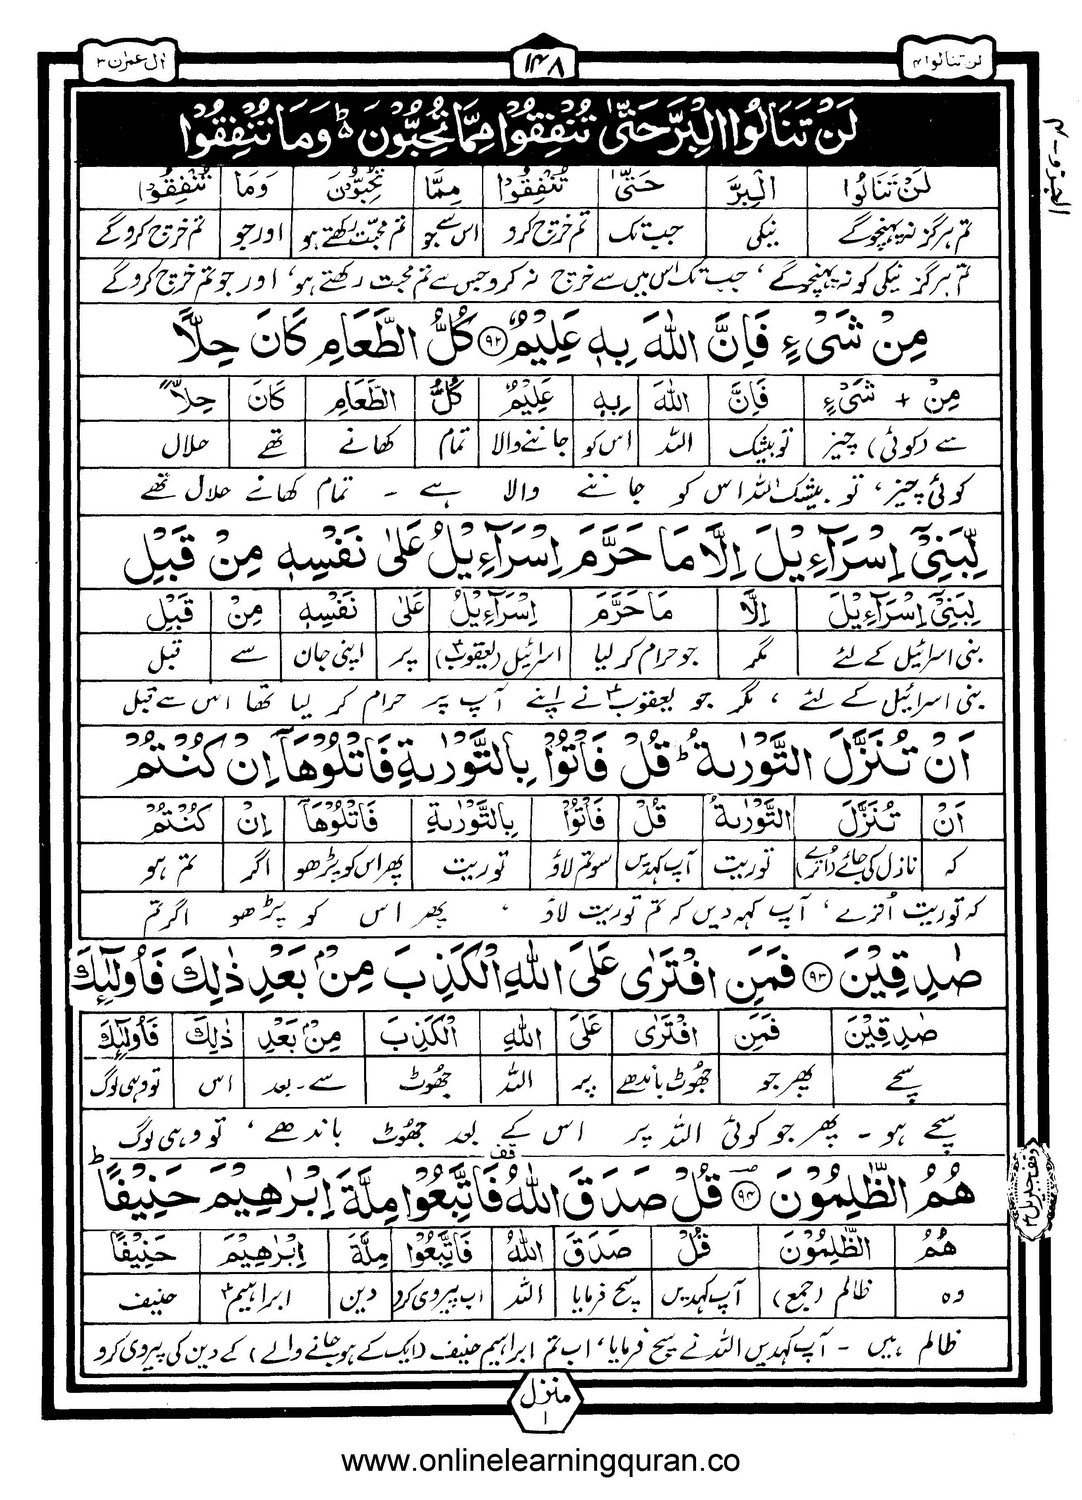 لن تنالوا ۴
۱۴۸
اٰل عمرٰن ۳
الجزو - ۴
لَنْ تَنَالُوا الْبِرَّ حَتّٰى تُنْفِقُوْا مِمَّا تُحِبُّوْنَ ؕ وَمَا تُنْفِقُوْا
لَنْ تَنَالُوا الْبِرَّ حَتّٰى تُنْفِقُوْا مِمَّا تُحِبُّوْنَ وَمَا تُنْفِقُوْا
تم ہرگز نہ پہنچوگے نیکی جب تک تم خرچ کرو اس سے جو تم محبت رکھتے ہو اور جو تم خرچ کروگے
تم ہرگز نیکی کو نہ پہنچوگے ، جب تک اس میں سے خرچ نہ کرو جس سے تم محبت رکھتے ہو ، اور جو تم خرچ کروگے
مِنْ شَىْءٍ فَاِنَّ اللّٰهَ بِهٖ عَلِيْمٌ ۹۲ كُلُّ الطَّعَامِ كَانَ حِلًّا
مِنْ + شَىْءٍ فَاِنَّ اللّٰهَ بِهٖ عَلِيْمٌ كُلُّ الطَّعَامِ كَانَ حِلًّا
سے (کوئی) چیز تو بیشک اللہ اس کو جاننے والا تمام کھانے تھے حلال
کوئی چیز ، تو بیشک اللہ اس کو جاننے والا ہے - تمام کھانے حلال تھے
لِّبَنِىْٓ اِسْرَآءِيْلَ اِلَّا مَا حَرَّمَ اِسْرَآءِيْلُ عَلٰى نَفْسِهٖ مِنْ قَبْلِ
لِبَنِىْٓ اِسْرَآءِيْلَ اِلَّا مَا حَرَّمَ اِسْرَآءِيْلُ عَلٰى نَفْسِهٖ مِنْ قَبْلِ
بنی اسرائیل کے لئے مگر جو حرام کر لیا اسرائیل (یعقوبؑ) پر اپنی جان سے قبل
بنی اسرائیل کے لئے ، مگر جو یعقوبؑ نے اپنے آپ پر حرام کر لیا تھا اس سے قبل
اَنْ تُنَزَّلَ التَّوْرٰىةُ ؕ قُلْ فَاْتُوْا بِالتَّوْرٰىةِ فَاتْلُوْهَاۤ اِنْ كُنْتُمْ
اَنْ تُنَزَّلَ التَّوْرٰىةُ قُلْ فَاْتُوْا بِالتَّوْرٰىةِ فَاتْلُوْهَاۤ اِنْ كُنْتُمْ
کہ نازل کی جائے (اترے) توریت آپ کہدیں سو تم لاؤ توریت پھر اس کو پڑھو اگر تم ہو
کہ توریت اُترے ، آپ کہہ دیں کہ تم توریت لاؤ ، پھر اس کو پڑھو اگر تم
صٰدِقِيْنَ ۹۳ فَمَنِ افْتَرٰى عَلَى اللّٰهِ الْكَذِبَ مِنْۢ بَعْدِ ذٰلِكَ فَاُولٰٓئِكَ
صٰدِقِيْنَ فَمَنِ افْتَرٰى عَلَى اللّٰهِ الْكَذِبَ مِنْۢ بَعْدِ ذٰلِكَ فَاُولٰٓئِكَ
سچے پھر جو جھوٹ باندھے پر اللہ جھوٹ سے - بعد اس تو وہی لوگ
سچے ہو - پھر جو کوئی اللہ پر اس کے بعد جھوٹ باندھے ، تو وہی لوگ
هُمُ الظّٰلِمُوْنَ ۹۴ قُلْ صَدَقَ اللّٰهُ قف فَاتَّبِعُوْا مِلَّةَ اِبْرٰهِيْمَ حَنِيْفًا ؕ
وقف جبریل
هُمُ الظّٰلِمُوْنَ قُلْ صَدَقَ اللّٰهُ فَاتَّبِعُوْا مِلَّةَ اِبْرٰهِيْمَ حَنِيْفًا
وہ ظالم (جمع) آپ کہدیں سچ فرمایا اللہ اب پیروی کرو دین ابراہیمؑ حنیف
ظالم ہیں - آپ کہدیں اللہ نے سچ فرمایا ، اب تم ابراہیم حنیف (ایک کے ہو جانے والے) کے دین کی پیروی کرو
منزل ۱
www.onlinelearningquran.co